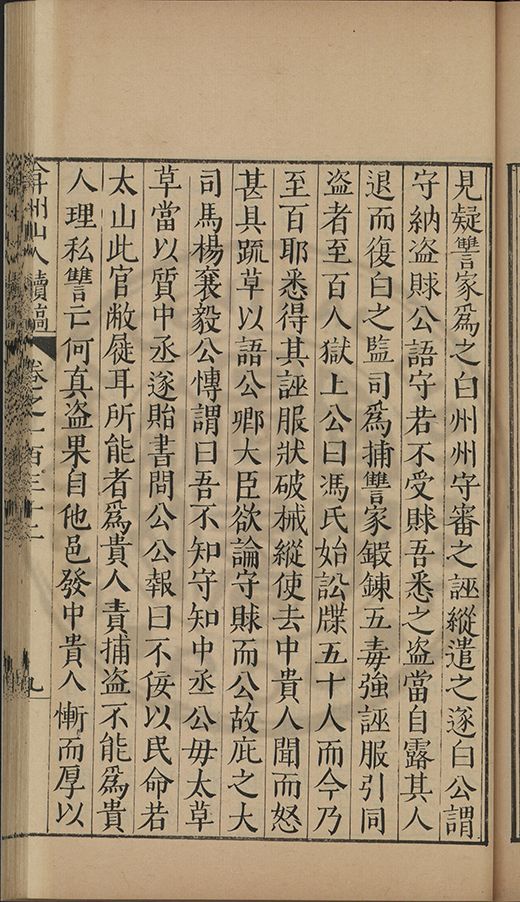 見疑讐家爲之白州州守審之誣縱遣之遂白公謂
守納盗賕公語守若不受賕吾悉之盗當自露其人
退而復白之監司爲捕讐家鍛鍊五毒強誣服引同
盗者至百人獄上公曰馮氏始訟牒五十人而今乃
至百耶悉得其誣服狀破械縱使去中貴人聞而怒
甚具䟽草以語公卿大臣欲論守賕而公故庇之大
司馬楊襄毅公慱謂曰吾不知守知中丞公毋太草
草當以質中丞遂貽書問公公報曰不佞以民命若
太山此官敝屣耳所能者爲貴人責捕盗不能爲貴
人理私讐亡何真盗果自他邑發中貴人慚而厚以
弇州山人續稿 卷之一百三十二 九